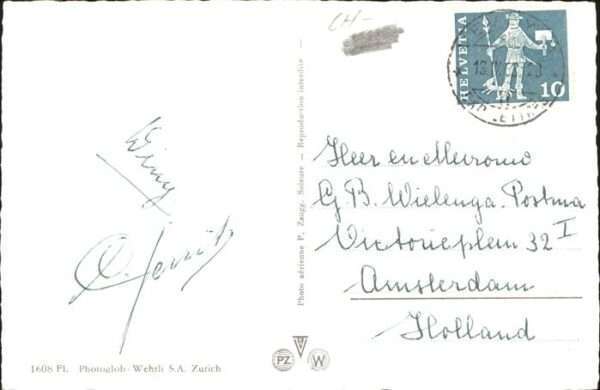 CH-
HELVETIA
10
Heer en Mevrouw
G. B. Wielenga-Postma
Victorieplein 32 I
Amsterdam
Holland
Wimy
Photo aérienne P. Zaugg, Soleure — Reproduction interdite —
1608 Pl. Photoglob-Wehrli S.A. Zurich
PZ
W